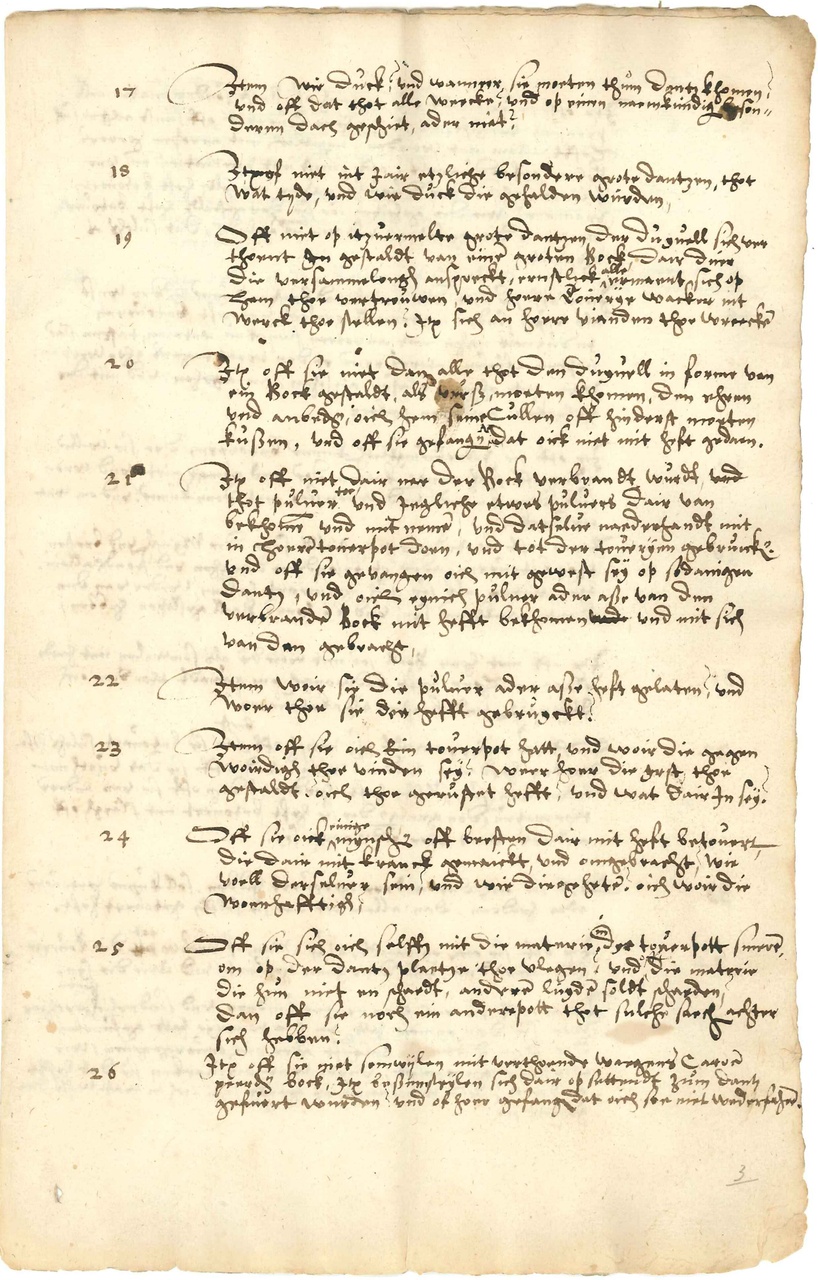 17 Item wie duck, und wanneer sie moeten thom dantz khomen,
und off dat thot alle weecke, und op einen naemkundig beson=
deren dach geschiet, ader niet?
18 Itz of niet int Jair etzliche besondere grote dantzen, thot
wat tyde, und wie duck die gehalden wurden,
19 Off niet op itzvermelte grote dantzen der duyuell sich ver
thoent In gestaldt van einen groten Bock, dair duer
die versammelongh anspreckt, ernstlick alle vermaent, sich op
hem thoe vertrouwen, und hoere Touerye wacker int
werck thoe stellen? Itz sich an hoere vianden thoe wreecken
20 Itz off sie niet dan alle thot den duyuell in forme van
ein Bock gestaldt, als vurß, moeten khomen, den ehren
und anbeden, oich hem seine Cullen off hinderst moeten
kußen, und off sie gefangn dat oick niet mit heft gedaen.
21 Itz off niet dair nae der Bock verbrandt wurdt, und
thot puluer, und Jegliche etwes puluers dair van
bekhomen und mit nemen, und datselue naederhandt mit
in hoeren touerpot doen, und tot der toueryen gebruicken.
und off sie gevangen oich mit gewest sey op sodanigen
dantz, und oich eynich puluer ader aße van den
verbranden Bock mit hefft bekhomen und mit sich
van dan gebracht,
22 Item woir sie die puluer ader aße heft gelaten, und
woer thoe sie die hefft gebruyckt?
23 Item off sie oich Ein touerpot hatt, und woir die gegen
woirdigh thoe vinden sey? Weer hoer die erst thoe
gestaldt, oich thoe gerustet hefft, und wat dair In sey?
24 Off sie oick einige mynschen off beesten dair mit heft betouert,
die dair mit kranck gemaickt, und omgebracht, wie
voell derseluer sein, und wie die geheten, oich woir die
woenhafftigh,
25 Off sie sich oich selffs mit die materie in der touerpott smeren,
om op der dantz plaetze thoe vlegen? und die materie
die hun niet en schaedt, anderen luyden soldt schaeden,
dan off sie noch ein anderepott thot sulche saeck achter
sich hebben?
26 Itz off sie niet somwylen mit verthoende waegens Caroen
peerdt bock, Itz beßemsteylen sich dair op sittendt zum dantz
gefuert wurden? und of hoer gefangn dat oich soe niet wederfahren.
3